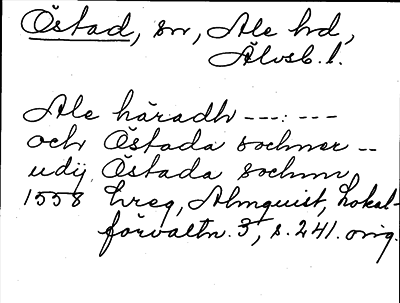 Östad, sn, Ale hd,
Älvsb. l.
Ale häradh ---:---
och Östada sochner --
udij Östada sochnn
1558 hreg, Almquist, Lokal-
förvaltn. 3, s. 241. orig.